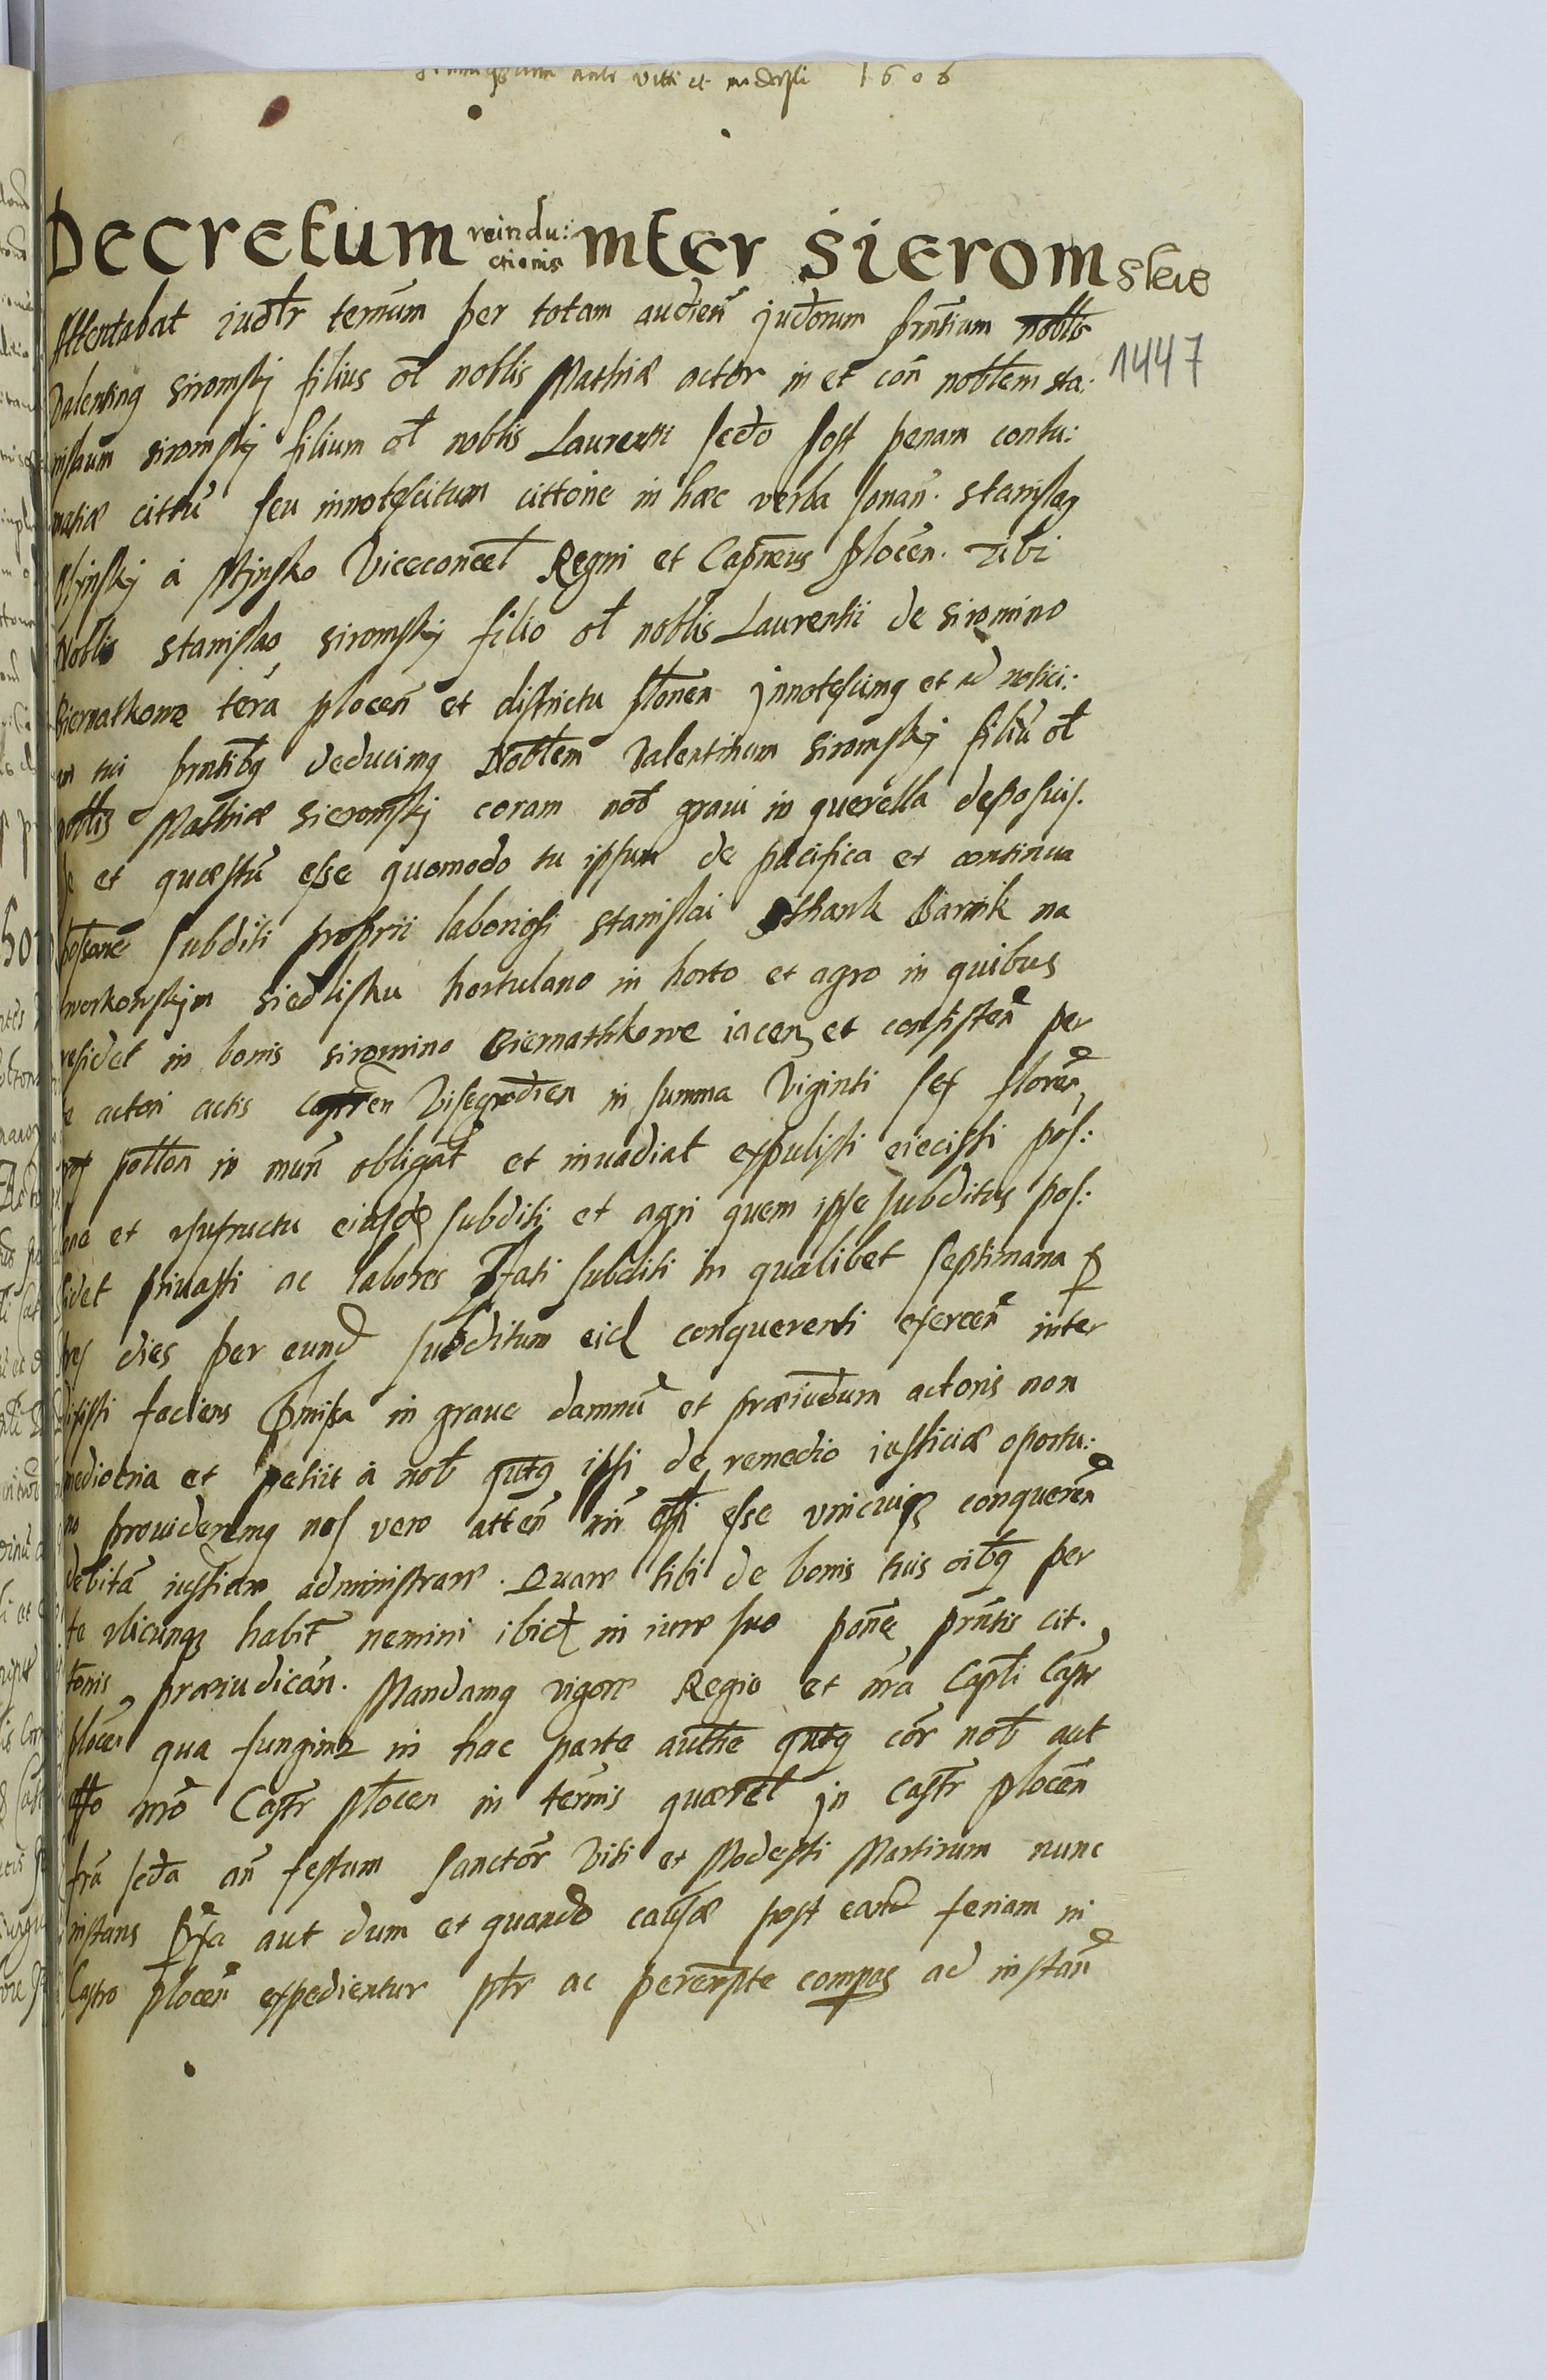 ante Viti et modesti 1606
Decretum reindu: ctionis inter Sierom skie
Attentabat iudlr termum per totam audien judorum prntium noblis
1447
Valentinq siromskj filius ol noblis Mathiæ actor in et con noblem sta:
nislaum siromskj filium ol noblis Laurentii secdo post penam contu:
matiæ cittu seu innotescitum cittone in hæc verba sonan. Stanislaq
Mjnskj à Mjnsko Vicecancel Regni et Capneus plocen. Tibi
Nobli stanislao siromskj filio ol noblis Laurentii de siromino
Biernathowe tera plocen et districtu plonen jnnotescimq et ad notici:
am tui prntibq deducimq Noblem Valentinum siromskj filiu ol
noblis Mathiæ sieromskj coram nob graui in querella deposuis.
se et quæstu esse quomodo tu ipsum de pacifica et continua
possone subditi proprii laboriosi stanislai Barnik na
siedlisku hortulano in horto et agro in quibus
residet in bonis siromino Biernathkowe iacen et consisten per
te actori actis castren Visegrodien in summa Viginti sex floren
pollon in mun obligat et inuadiat expulisti eiecisti pos:
one et vsufructu eiusde subditi et agri quem ipse subditus pos:
sidet priuasti ac labores pfati subditi in qualibet septimana p
tres dies per eund subditum eid conquerenti exercen inter
dixisti faciens pmissa in graue damnu et præiudum actoris non
mediocria et petiit à nob qutq ipsi de remedio iusticiæ oportu:
no prouideremq nos vero atten nri offi esse vnicuiq conqueren
debita iusticiam administrare. Quare tibi de bonis tuis oibq per
te vbicunqz habit nemini ibid in iure suo pone prntis cit.
tonis præiudican. Mandamq vigore Regio et nra Capli Castr
plocen qua fungimr in hac parte authe qutq cor nob aut
offo nro Castr plocen in termis quærel jn Castr plocen
fria secda an festum sanctor Viti et Modesti Martirum nunc
instans pxa aut dum et quando causæ post eand feriam in
Castro plocen expedientur ptr ac perempte compas ad instan